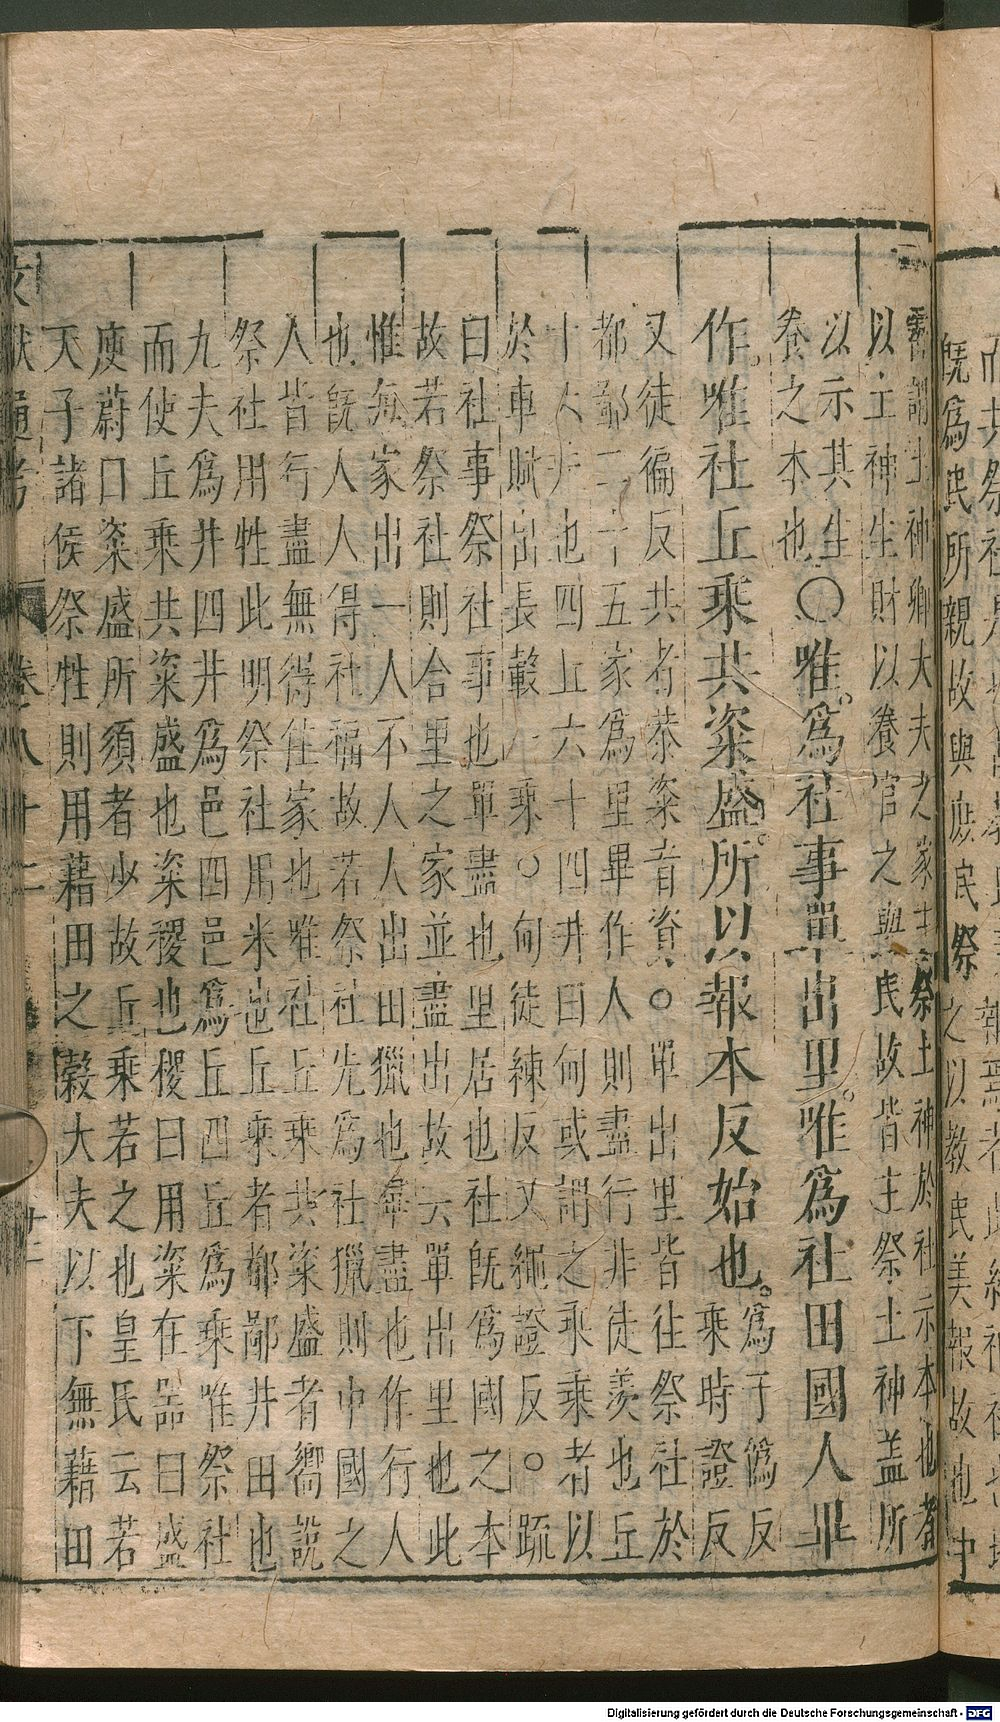 既爲民所親故與庶民祭之以教民美報故也中
霤謂土神卿大夫之家主祭土神於社示本也者
以土神生財以養官之與民故皆主祭土神蓋所
以示其生
養之本也
○唯爲社事單出里唯爲社田國人畢
作唯社丘乘共粢盛所以報本反始也
爲于僞反
乘時證反
又徒徧反共者恭粢者資○單出里皆往祭社於
都鄙二十五家爲里畢作人則盡行非徒羨也丘
十六井也四丘六十四井曰甸或謂之乘乘者以
於車賦出長轂一乘○甸徒練反又繩證反○疏
曰社事祭社事也單盡也里居也社既爲國之本
故若祭社則合里之家並盡出故云單出里也此
惟每家出一人不人人出田獵也畢盡也作行人
也既人人得社福故若祭社先爲社獵則中國之
人皆行盡無得住家也唯社丘乘共粢盛者嚮說
祭社用牲此明祭社用米也丘乘者都鄙井田也
九夫爲井四井爲邑四邑爲丘四丘爲乘唯祭社
而使丘乘共粢盛也粢稷也稷曰用粢在器曰盛
庾蔚曰粢盛所須者少故丘乘若之也皇氏云若
天子諸侯祭牲則用藉田之穀大夫以下無藉田
文獻通考 卷八十二
Digitalisierung gefördert durch die Deutsche Forschungsgemeinschaft - DFG